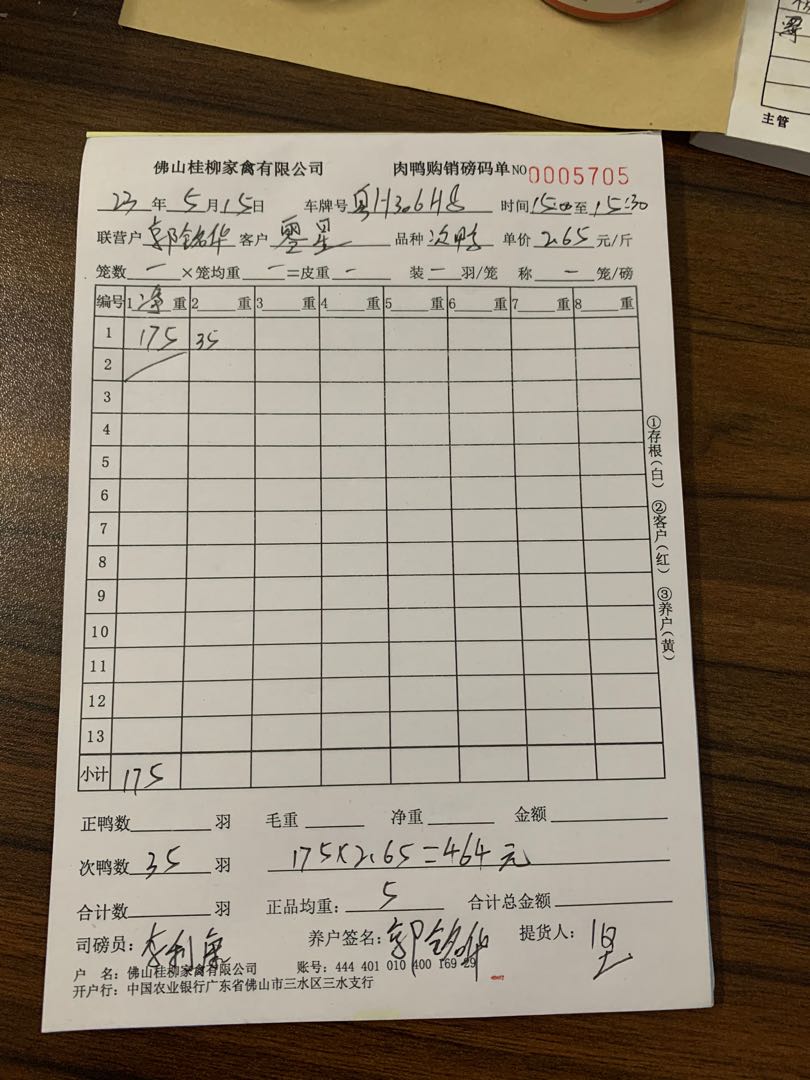 主管
佛山桂柳家禽有限公司 肉鸭购销磅码单 NO 0005705
23 年 5 月 15 日 车牌号 时间 15:00 至 15:30
联营户 郭铭华 客户 零星 品种 次鸭 单价 2.65 元/斤
笼数 一 ×笼均重 一 =皮重 一 装 一 羽/笼 称 一 笼/磅
编号 1 净 重 2 重 3 重 4 重 5 重 6 重 7 重 8 重
1 175 35
2
3
4
5
6
7
8
9
10
11
12
13
小计 175
①存根(白) ②客户(红) ③养户(黄)
正鸭数 羽 毛重 净重 金额
次鸭数 35 羽 175×2.65=464元
合计数 羽 正品均重: 5 合计总金额
司磅员: 养户签名: 郭铭华 提货人:
户 名: 佛山桂柳家禽有限公司 账号: 444 401 010 400 169 29
开户行: 中国农业银行广东省佛山市三水区三水支行